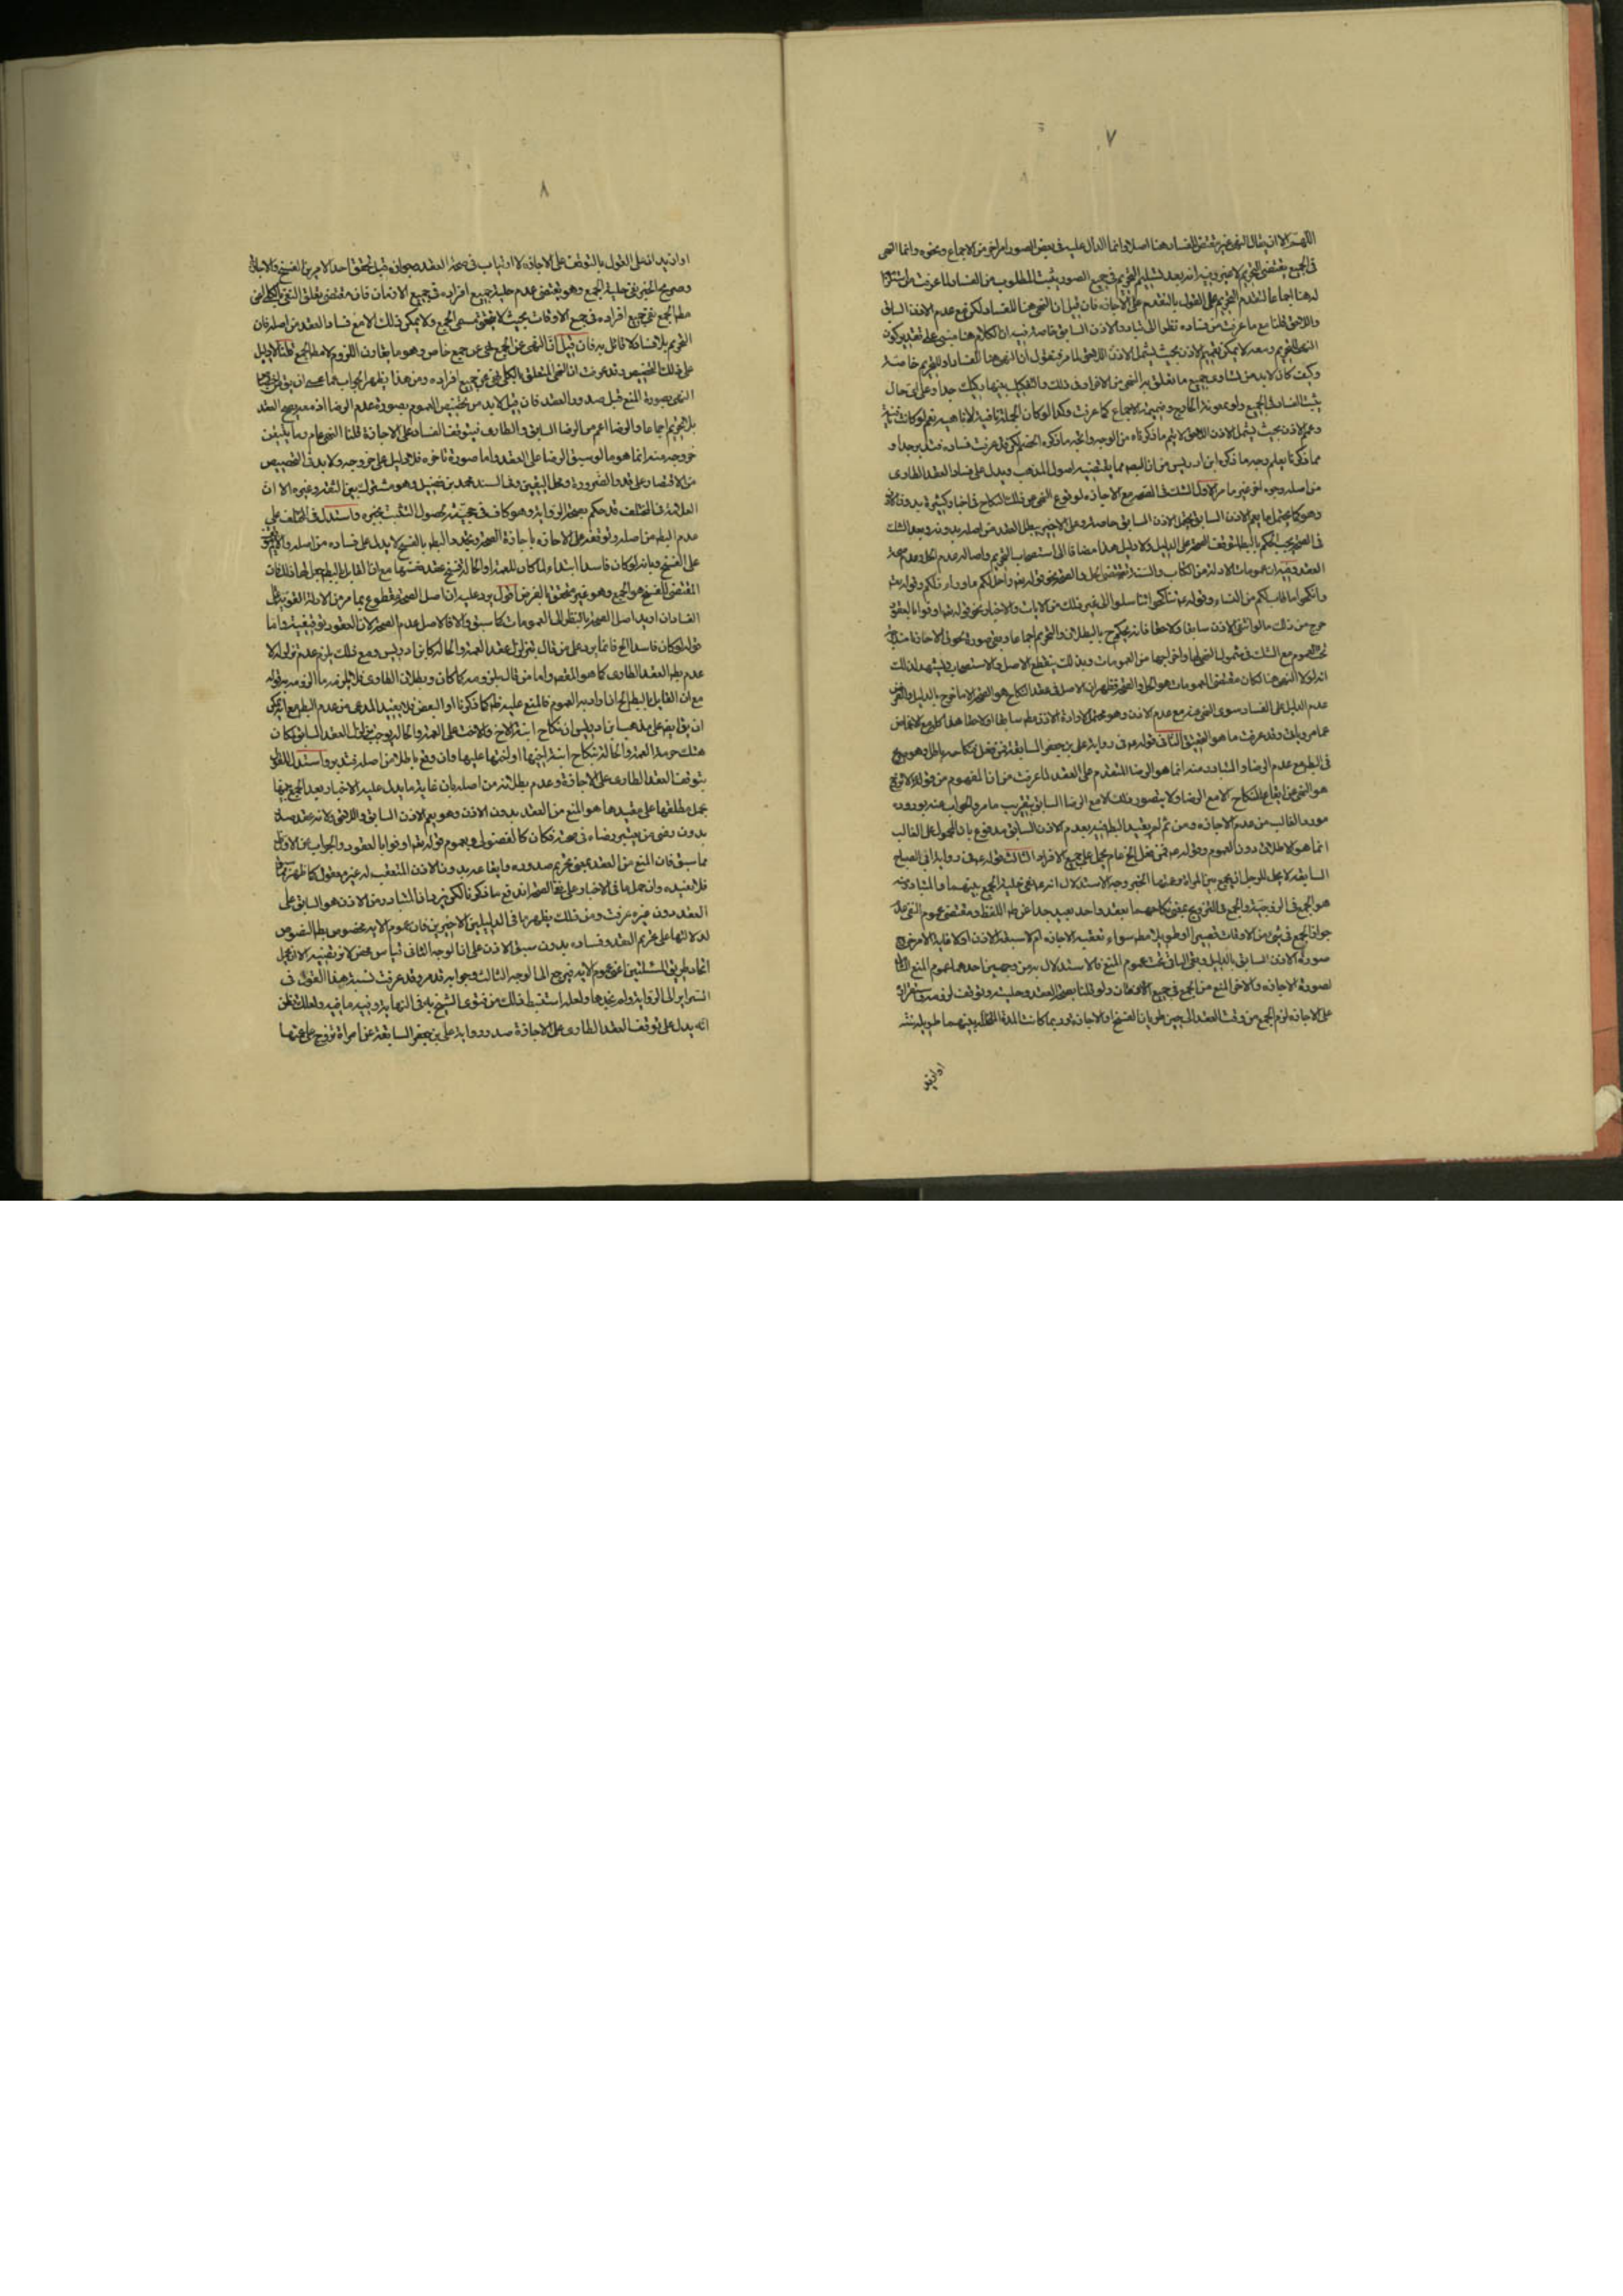 ٧
اللهم الا ان يقال النهى غير مقتض للفساد هنا اصلا وانما الدال عليه فى بعض الصور امر اخر من الاجماع ونحوه وانما النهى
فى الجميع يقتضى التحريم لا غير وفيه انه بعد تسليم التحريم فى جميع الصور يثبت المطلوب من الفساد لما عرفت من
له هنا اجماعا لتقدم التحريم على القول بالتقدم على الاجازه فان قيل ان النهى هنا للفساد لكن مع عدم الاذن السابق
واللاحق قلنا مع ما عرفت من فساده نظرا الى تبادر الاذن السابق خاصة فيه ان الكلام هنا مبنى على تقدير كون
النهى للتحريم ومعه لا يمكن تعميم الاذن بحيث يشمل الاذن اللاحق لما مر فنقول ان النهى هنا للفساد او للتحريم خاصة
وكيف كان لابد من تساوى جميع ما تعلق به النهى من الافراد فى ذلك والتفكيك بينها ركيك جدا وعلى اى حال
يثبت الفساد فى الجميع ولو بمعونة الخارج وضميمة الاجماع كما عرفت وكذا لو كان الجملة نافية لا ناهية نعم لو كانت
وعمم الاذن بحيث يشمل الاذن اللاحق لا يتم ما ذكرناه من الوجه واتجه ما ذكره الخصم لكن قد عرفت فساده فتدبر جدا و
مما ذكرنا يعلم وجه ما ذكره ابن ادريس من ان البطلان مما يقتضيه اصول المذهب ويدل على فساد العقد الطارى
من اصله وجوه اخر غير ما مر الاول الشك فى الصحة مع الاجازه لوقوع النهى عن ذلك النكاح فى اخبار كثيرة بدون الاذن
وهو كما يحتمل ما يعم الاذن السابق يحتمل الاذن السابق خاصة وعلى الاخير يبطل العقد من اصله بدونه وبعد الشك
فى الصحة يجب الحكم بالبطلان لتوقف الصحة على الدليل ولا دليل هنا مضافا الى استصحاب التحريم واصالة عدم الحل وعدم صحة
العقد وفيه ان عمومات الادلة من الكتاب والسنة تقتضى الحل والصحة نحو قوله تعالى واحل لكم ما وراء ذلكم وقوله تعالى
وانكحوا ما طاب لكم من النساء وقوله ع تناكحوا تناسلوا الى غير ذلك من الايات والاخبار نحو قوله تعالى اوفوا بالعقود
خرج من ذلك ما لو انتفى الاذن سابقا ولاحقا فانه يحكم ح بالبطلان والتحريم اجماعا وبقى صورة لحوق الاجازة مندرجة
تحت العموم مع الشك فى شمول النهى لها واخراجها من العمومات وبذلك ينقطع الاصل والاستصحاب ويشهد لذلك
انه لولا النهى هنا لكان مقتضى العمومات هو الحل والصحة فظهر ان الاصل فى عقد النكاح هو الصحة الا ما خرج بالدليل والفرض
عدم الدليل على الفساد سوى النهى عنه مع عدم الاذن وهو محتمل لارادة الاذن مطلقا سابقا او لاحقا هذا كله مع الاغماض
عما مر وياتى وقد عرفت ما هو التحقيق الثانى قوله ع فى رواية على بن جعفر السابقة فمن فعل فنكاحه باطل وهو صريح
فى البطلان مع عدم الرضا والمتبادر منه انما هو الرضا المتقدم على العقد لما عرفت من ان المفهوم من قوله لا تزوج
هو النهى عن ايقاع النكاح الا مع الرضا ولا يتصور ذلك الا مع الرضا السابق بتقريب ما مر والجواب عنه بوروده
مورد الغالب من عدم الاجازه ومن ثم لم يقيد البطلان فيه بعدم الاذن السابق مدفوع بان المحمول على الغالب
انما هو الاطلاق دون العموم وقوله ع فمن فعل الخ عام يحمل على جميع الافراد الثالث قوله ع فى رواية ابى الصباح
السابقة لا يحل للرجل ان يجمع بين المراة وعمتها الخبر وجه الاستدلال انه ع نفى حلية الجمع بينهما والمتبادر منه
هو الجمع فى الزوجية والجمع فى التزويج بمعنى نكاحهما بعقد واحد بعيد جدا عن ظاهر اللفظ ومقتضى عموم النفى عدم
جواز الجمع فى شئ من الاوقات قصيرا او طويلا مطلقا سواء تعقبه الاجازه ام لا سبقه الاذن اولا غاية الامر خرج
صورة الاذن السابق بالدليل وبقى الباقى تحت عموم المنع فالاستدلال به من وجهين احدهما عموم المنع
لصورة الاجازه والاخر المنع من الجمع فى جميع الازمان ولو قلنا بصحة العقد وحليته وتوقف لزومه واستمراره
على الاجازه لزم الجمع من وقت العقد الى حين طريان الفسخ او الاجازه وربما كانت المدة المتخللة بينهما طويلة سنة
او ازيد
٨
او ازيد انه على القول بالتوقف على الاجازه لا ارتياب فى صحة العقد وجوازه قبل تحقق احد الامرين الفسخ والاجازة
وصريح الخبر نفى حلية الجمع وهو يقتضى عدم حلية جميع افراده فى جميع الازمان فان مقتضى تعلق النفى بالكلى اعنى
مطلق الجمع نفى جميع افراده فى جميع الاوقات بحيث لا يتحقق مسمى الجمع ولا يمكن ذلك الا مع فساد العقد من اصله فان
التحريم بلا فساد لا قائل به فان قيل ان النهى عن الجمع نهى عن جمع خاص وهو ما يقارن اللزوم لا مطلق الجمع قلنا لا دليل
على ذلك التخصيص وقد عرفت ان النهى المتعلق بالكلى نهى عن جميع افراده ومن هذا يظهر الجواب عما عسى ان يق
النهى بصورة المنع قبل صدور العقد فان قيل لابد من تخصيص العموم بصورة عدم الرضا اذ معه يصح العقد
بلا تحريم اجماعا والرضا اعم من الرضا السابق والطارى فيتوقف الفساد على الاجازة قلنا النهى عام وما يتيقن
خروجه منه انما هو ما لو سبق الرضا على العقد واما صورة تاخره فلا دليل على خروجه ولابد فى التخصيص
من الاقتصار على قدر الضرورة ومحل اليقين وفى السند محمد بن فضيل وهو مشترك بين الثقة وغيره الا ان
العلامة فى المختلف قد حكم بصحة الرواية وهو كاف فى حجيته لحصول التثبت بخبره واستدل فى المختلف على
عدم البطلان من اصله وتوقفه على الاجازه باجازة الصحة ونحوه والبطلان بالفسخ لا يدل على فساده من اصله والا لم
على الفسخ وبانه لو كان فاسدا ابتداء لما كان للعمة او الخالة فسخ عقد بنتهما مع ان القايل بالبطلان جعل لها ذلك فان
المقتضى للفسخ هو الجمع وهو غير متحقق بالفرض اقول يرد عليه ان اصل الصحة مقطوع بما مر من الادلة القوية على
الفساد ان اريد اصل الصحة بالنظر الى العمومات كما سبق والا فالاصل عدم الصحة لان العقود توقيفية واما
قوله لو كان فاسدا الخ فانما يرد على من قال بتزلزل عقد العمة والخالة كابن ادريس ومع ذلك يلزم عدم تزلزله لا
عدم بطلان العقد الطارى كما هو المقصود واما من قال بلزومه كما كان وبطلان الطارى فلا يلزمه ما الزمه به قوله
مع ان القايل بالبطلان الخ ان اراد به العموم فالمنع عليه ظاهر كما ذكرنا او البعض فلا يفيد المدعى من عدم البطلان مع انه يمكن
ان يق ايضا على مذهب ابن ادريس ان نكاح ابنة الاخ والاخت على العمة والخالة يوجب تزلزل العقد السابق لمكان
هتك حرمة العمة والخالة بنكاح ابنة اخيها او اختها عليها وان وقع باطلا من اصله فتدبر واستدل للقول
بتوقف العقد الطارى على الاجازه وعدم بطلانه من اصله بان غاية ما يدل عليه الاخبار بعد الجمع بينها
بحمل مطلقها على مقيدها هو المنع من العقد بدون الاذن وهو يعم الاذن السابق واللاحق ولانه عقد صدر
بدون رضى من يعتبر رضاه فى صحته فكان كالفضولى ولعموم قوله تعالى اوفوا بالعقود والجواب عن الاول
ما سبق فان المنع من العقد بمعنى تحريم صدوره وايقاعه بدون الاذن المتعقب له غير معقول كما ظهر
فلا نعيده وان حمل ما فى الاخبار على نفى الصحة اندفع ما ذكرنا لكن يرد ان المتبادر من الاذن هو السابق على
العقد دون غيره عرفت ومن ذلك يظهر ما فى الدليلين الاخيرين فان عموم الاية مخصوص بظاهر النصوص
لدلالتها على تحريم العقد وفساده بدون سبق الاذن على ان الوجه الثانى قياس محض لا نرتضيه الا ان يجعل
اتحاد طريق المسئلتين اعنى عموم الاية فيرجع الى الوجه الثالث وجوابه قد مر وقد عرفت نسبة هذا القول فى
السراير الى الرواية ولم نجدها ولعله استنبط ذلك من فتوى الشيخ به فى النهاية وفيه ما فيه ولعلك تظن
انه يدل على توقف العقد الطارى على الاجازة صدر رواية على بن جعفر السابقة عن امراة تزوج على عمتها